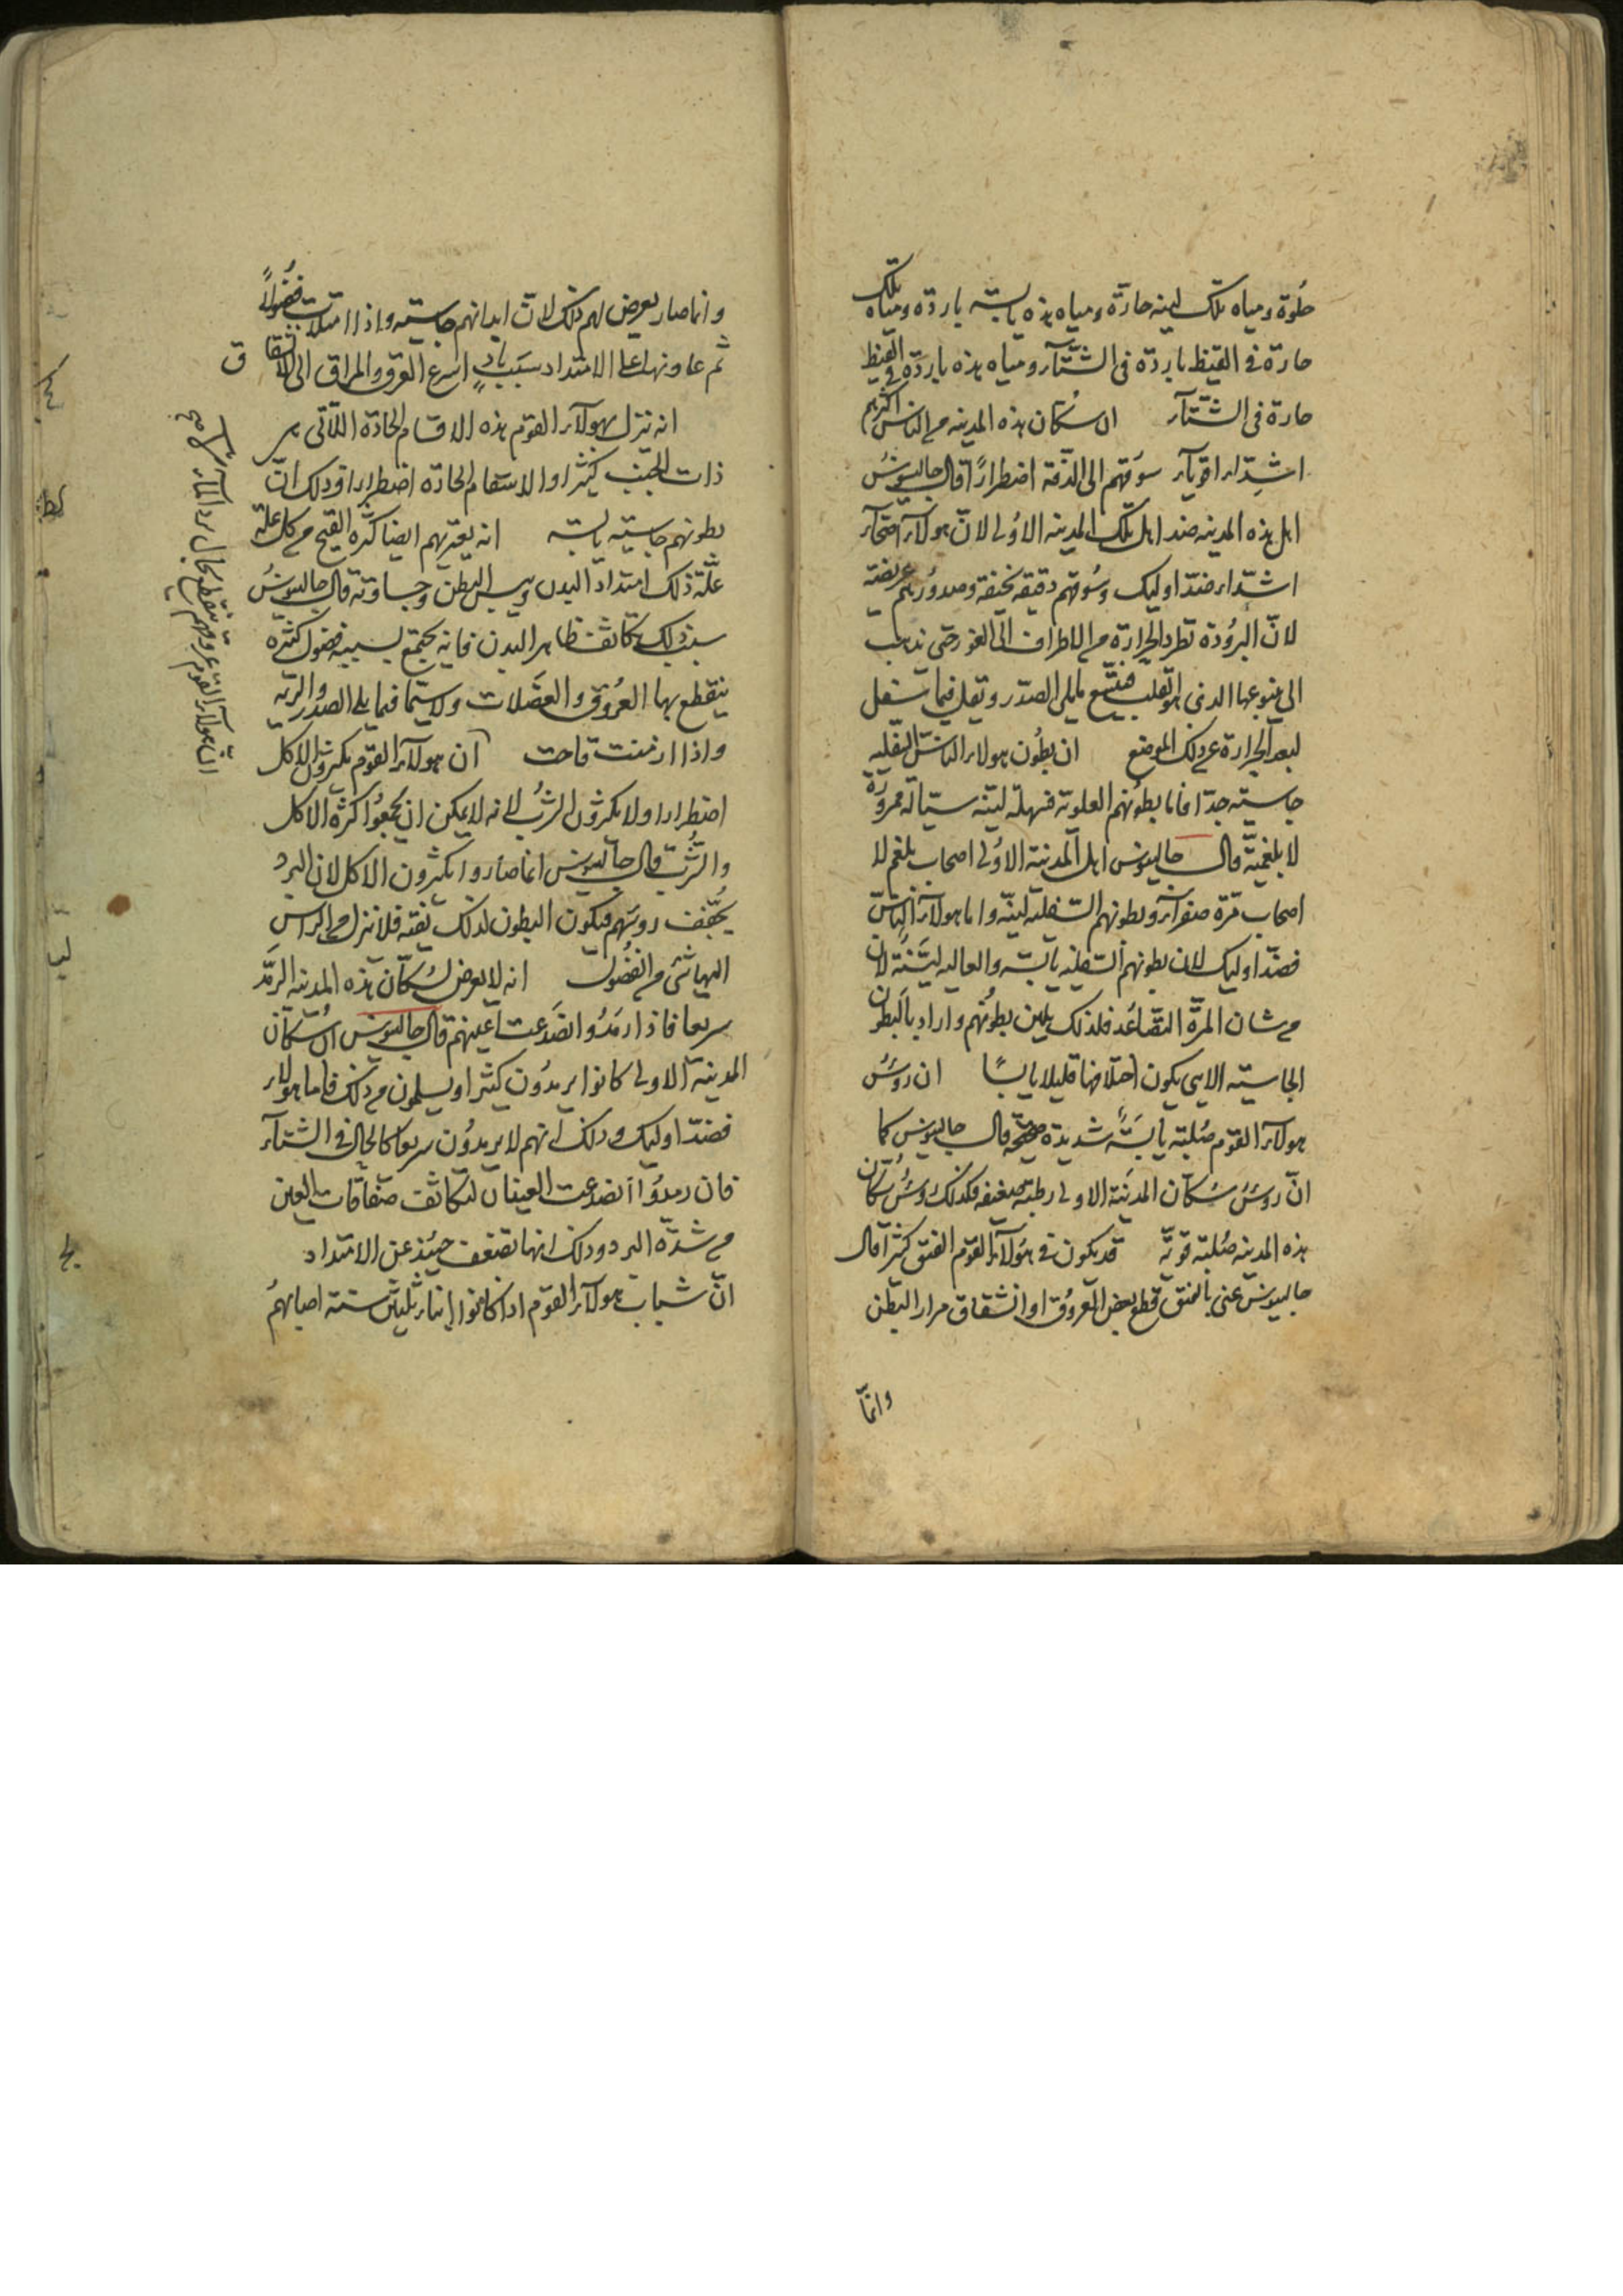 حلوة ومياه تلك لينه حارة ومياه هذه يابسة باردة ومياه تلك
حارة في القيظ باردة في الشتآء ومياه هذه باردة في القيظ
حارة في الشتآء ان سكان هذه المدينه من الناس اكثرهم
اشداء اقوياء سوقهم الى الدقة اضطرارًا قال جالينوس
اهل هذه المدينه ضد اهل تلك المدينه الاولى لان هولآء اصحآء
اشداء ضد اوليك وسوقهم دقيقه نحيفه وصدورهم عريضة
لان البرودة تطرد الحرارة من الاطراف الى الغور حتى تذهب
الى ينبوعها الذي هو القلب فيتسع ما يلي الصدر ويقل فيما تسفل
لبعد الحرارة عن ذلك الموضع ان بطون هولاء الناس السفليه
جاسيه جدا فاما بطونهم العلوية فسهلة لينه سيالة ممرورة
لا بلغمية قال جالينوس اهل المدينة الاولى اصحاب بلغم لا
اصحاب مرة صفرآء وبطونهم السفليه لينة واما هولآء الناس
فضد اوليك لان بطونهم السفليه يابسة والعاليه لينة لان
من شان المرة التصاعد فلذلك يلين بطونهم واراد بالبطون
الجاسيه الاي يكون اختلافها قليلا يابسًا ان روس
هولآء القوم صلبة يابسة شديدة صحيحة قال جالينوس كما
ان روس سكان المدينة الاولى رطبة ضعيفه فكذلك روس سكان
هذه المدينه صلبة قوية قد يكون في هولآء القوم الفتق كثيرا قال
جالينوس عنى بالفتق قطع بعض العروق او انشقاق مرار البطن
وانما
وانما صار يعرض لهم ذلك لان ابدانهم جاسيه واذا امتلات فضولاً
ثم عاونها على الامتداد سبب بادٍ اسرع العرق والمراق الى الانشقاق
انه تنزل بهولآء القوم هذه الاقسام الحادة اللآتي هي
ذات الجنب كثيرا والاسقام الحادة اضطرارا وذلك ان
بطونهم جاسيه يابسة انه يعتريهم ايضا كثرة القيح من كل علة
علة ذلك امتداد البدن ويبس البطن وجساوته قال جالينوس
سبب ذلك تكاثف ظاهر البدن فانه يجتمع بسببه فضول كثيرة
ينقطع بها العروق والعضلات ولا سيما فيما يلي الصدر والرية
واذا ازمنت قاحت ان هولآء القوم يكثرون الاكل
اضطرارا ولا يكثرون الشرب لانه لا يمكن ان يجمعوا كثرة الاكل
والشرب قال جالينوس انما صاروا يكثرون الاكل لان البرد
يجفف روسهم فيكون البطون لذلك نقية فلا تنزل من الراس
اليها شئ من الفضول انه لا يعرض لسكان هذه المدينه الرمد
سريعا فاذا رمدوا انصدعت اعينهم قال جالينوس ان سكان
المدينة الاولى كانوا يرمدون كثيرا ويسلمون من ذلك فاما هولاء
فضد اوليك وذلك انهم لا يرمدون سريعا كالحال في الشتآء
فان رمدوا انصدعت العينان لتكاثف صفاقات العين
من شدة البرد وذلك انها تضعف حينئذ عن الامتداد
ان شباب هولآء القوم اذا كانوا ابناء ثلثين سنة اصابهم
كط
لب
لج